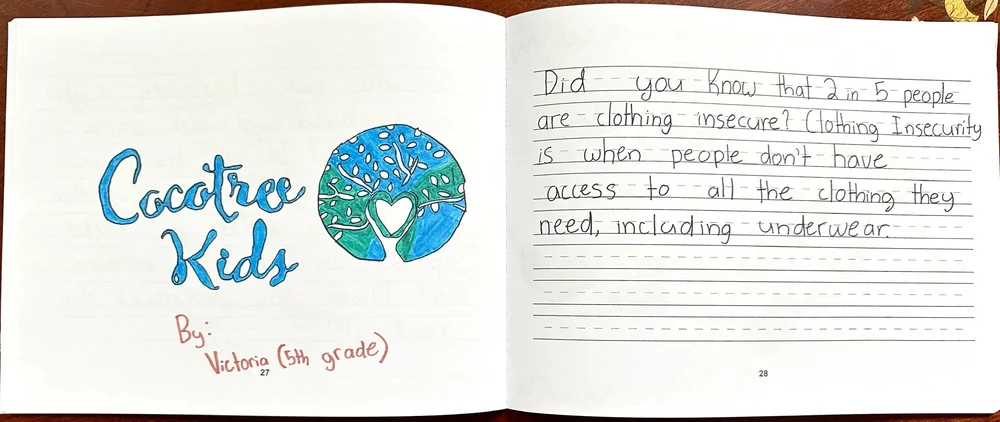 Cocotree
Kids
By:
Victoria (5th grade)
27
Did you know that 2 in 5 people
are clothing insecure? Clothing Insecurity
is when people don't have
access to all the clothing they
need, including underwear.
28